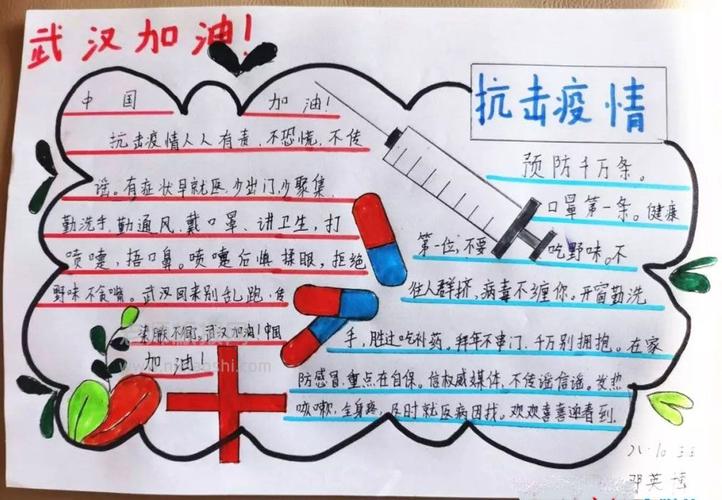 武汉加油!
抗击疫情
中国 加油!
抗击疫情人人有责,不恐慌,不传
谣。有症状早就医,少出门,少聚集,
勤洗手,勤通风、戴口罩、讲卫生,打
喷嚏,捂口鼻。喷嚏后慎揉眼,拒绝
野味不贪嘴。武汉回来别乱跑,传
染源不同。武汉加油!中国
加油!
预防千万条。
口罩第一条。健康
第一位,不要吃野味。不
往人群挤,病毒不缠你。开窗勤洗
手,胜过吃补药。拜年不串门,千万别拥抱。在家
防感冒,重点在自保。信权威媒体,不传谣信谣。发热
咳嗽,全身疼,及时就医病因找。欢欢喜喜迎看到.
邓英